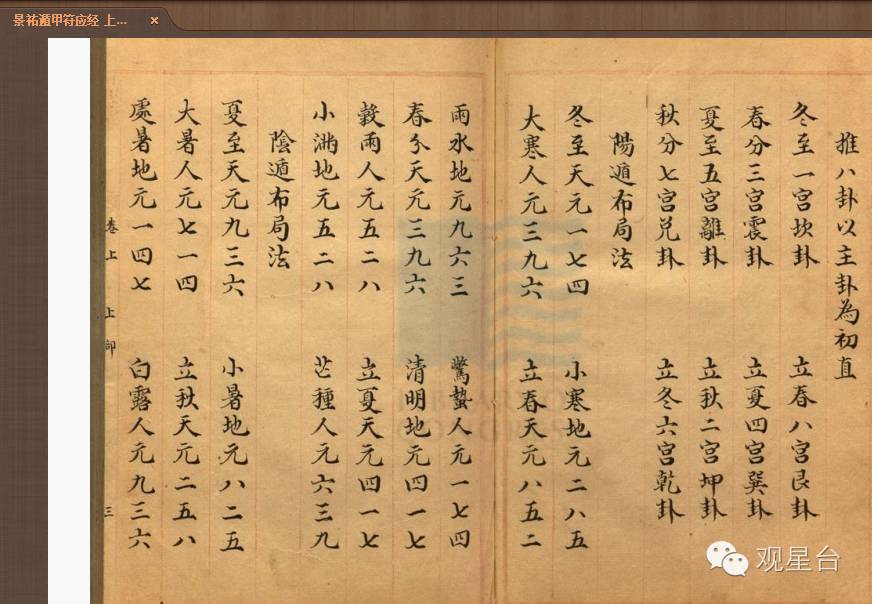 景祐遁甲符应经 上...
推八卦以主卦為初直
冬至一宫坎卦 立春八宫艮卦
春分三宫震卦 立夏四宫巽卦
夏至五宫離卦 立秋二宫坤卦
秋分七宫兑卦 立冬六宫乾卦
陽遁布局法
冬至天元一七四 小寒地元二八五
大寒人元三九六 立春天元八五二
雨水地元九六三 驚蟄人元一七四
春分天元三九六 清明地元四一七
穀雨人元五二八 立夏天元四一七
小満地元五二八 芒種人元六三九
陰遁布局法
夏至天元九三六 小暑地元八二五
大暑人元七一四 立秋天元二五八
處暑地元一四七 白露人元九三六
卷上 上 三
观星台